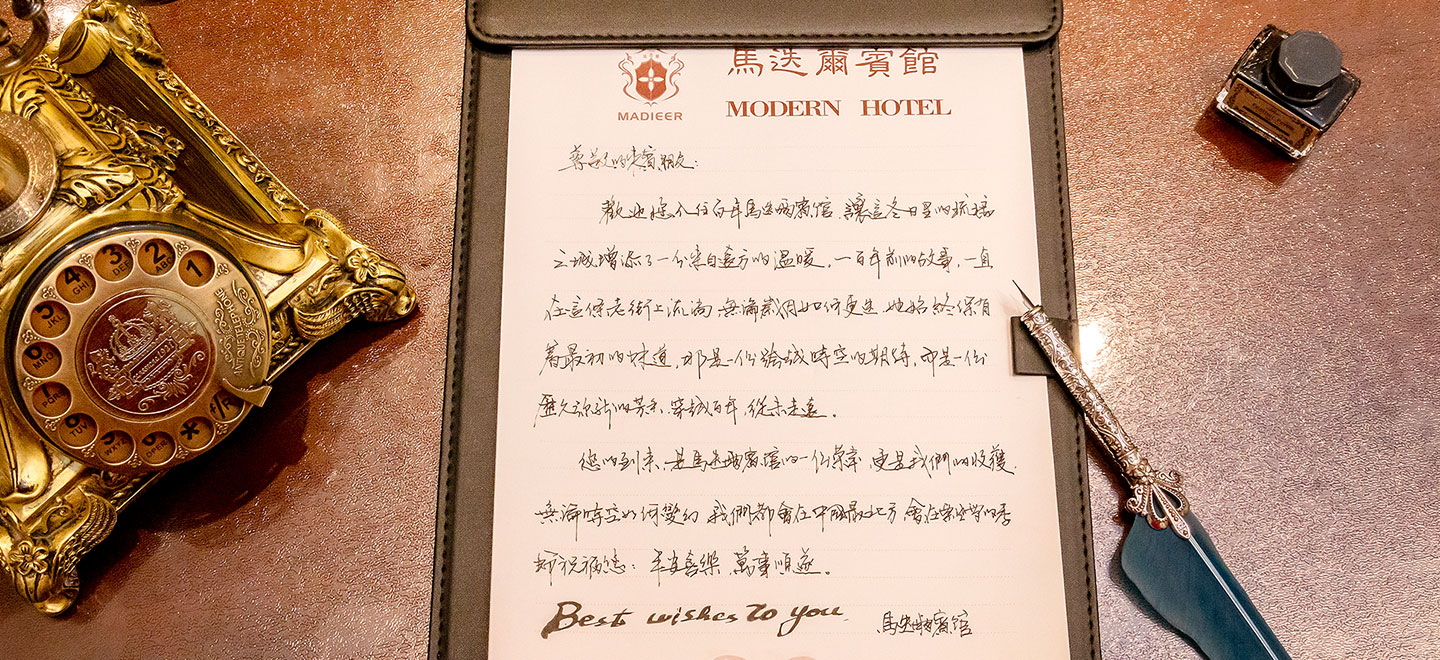 馬迭爾賓館
MADIEER
MODERN HOTEL
尊敬的來賓朋友：
歡迎您入住百年馬迭爾賓館，讓這冬日里的
之城增添了一份來自遠方的溫暖。一百年前的故事，一直
在這條老街上流淌，無論歲月如何更迭，她始終保有
着最初的味道，那是一份跨越時空的期待，亦是一份
歷久弥新的芬芳，穿越百年，從未走遠。
您的到來，是馬迭爾賓館的一份榮幸，更是我們的收穫，
無論時空如何變幻，我們都會在中國最北方，會在
祝福您：平安喜樂，萬事順遂。
Best wishes to you
馬迭爾賓館
1
2 ABC
3 DEF
4 GHI
5 JKL
MNO
PQRS
TUV
WXYZ
OPER
*
#/R